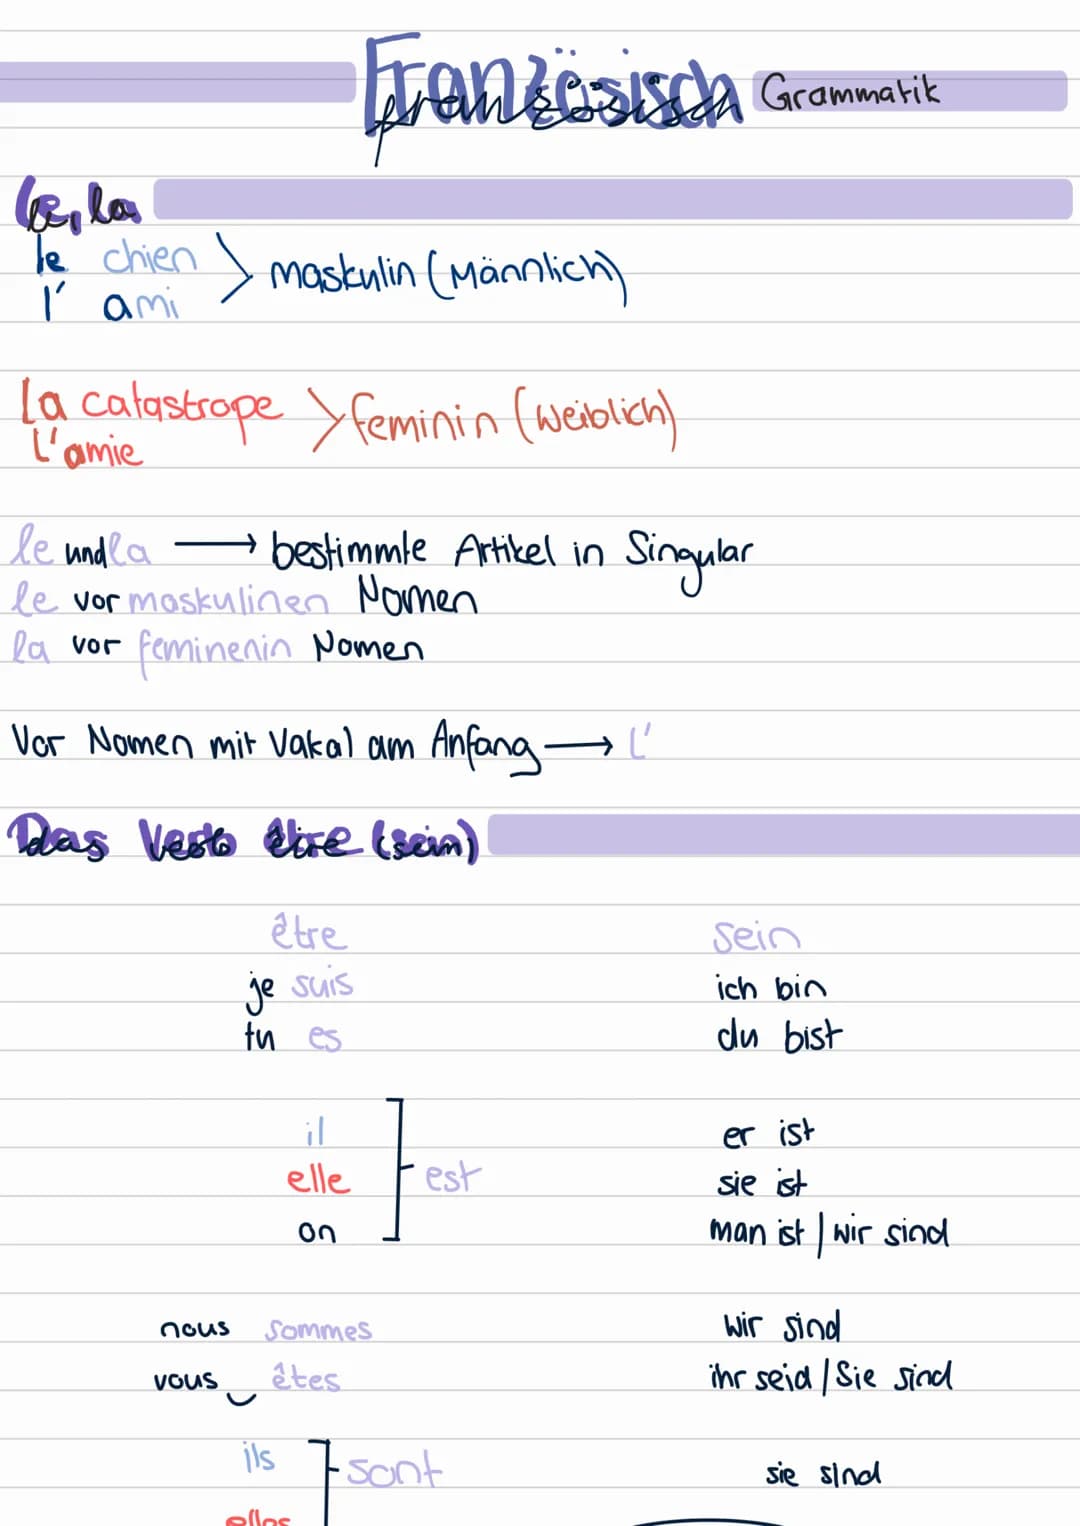 Französisch Grammatik
le, la
le chien
l' ami
maskulin (Männlich)
la catastrope
l'amie
feminin (weiblich)
le und la → bestimmte Artikel in Singular
le vor maskulinen Nomen
la vor feminenin Nomen
Vor Nomen mit Vakal am Anfang → l'
Das Verb être (sein)
être sein
je suis ich bin
tu es du bist
il er ist
elle est sie ist
on man ist | wir sind
nous sommes wir sind
vous êtes ihr seid / Sie sind
ils sont sie sind
elles